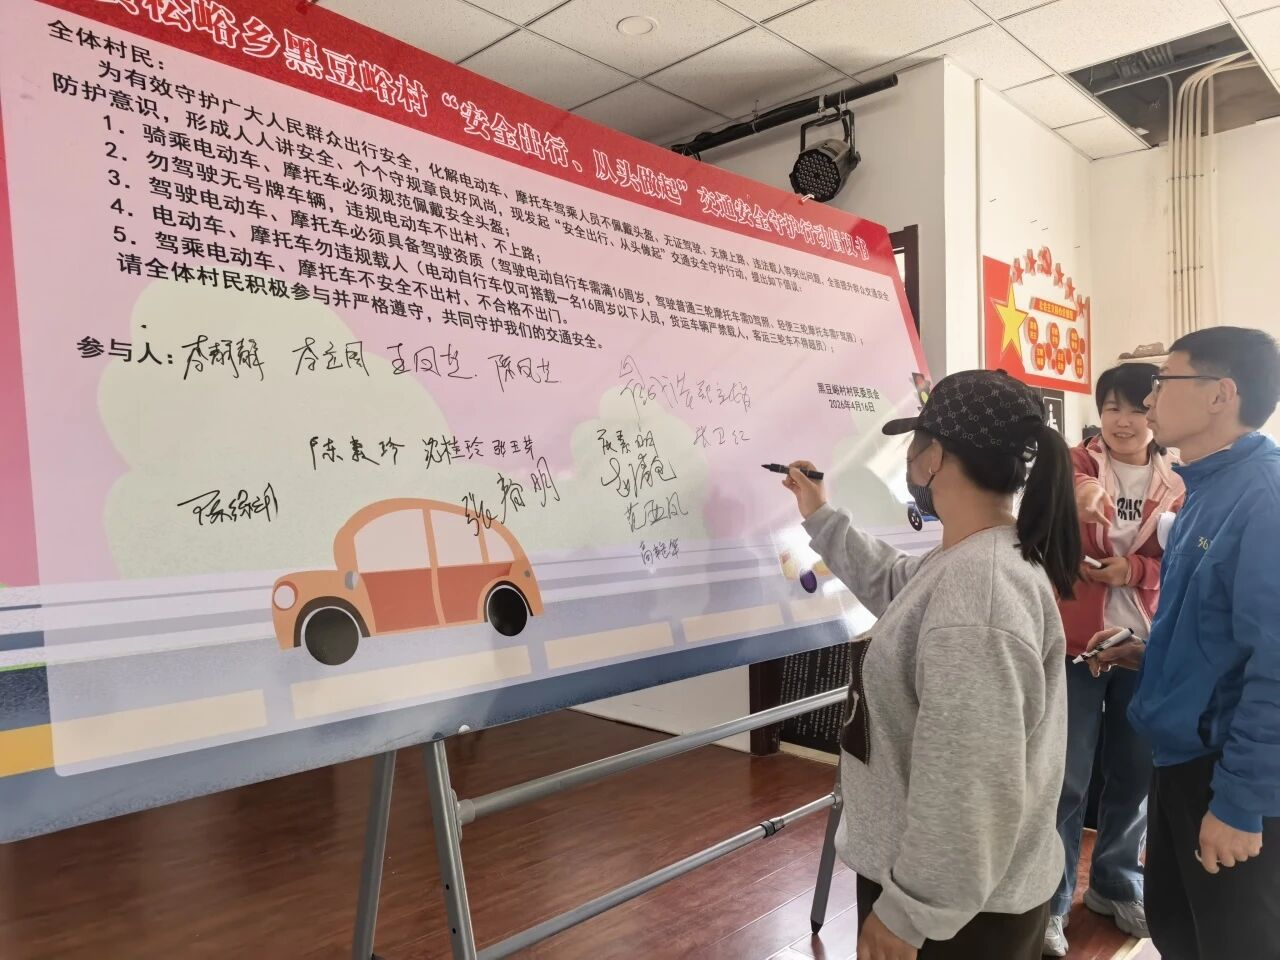 松峪乡黑豆峪村“安全出行、从头做起”交通安全守护行动倡议书
全体村民：
为有效守护广大人民群众出行安全，化解电动车、摩托车驾乘人员不佩戴头盔、无证驾驶、无牌上路、违法载人等突出问题，全面提升群众交通安全
防护意识，形成人人讲安全、个个守规章良好风尚，现发起“安全出行、从头做起”交通安全守护行动，提出如下倡议：
1. 骑乘电动车、摩托车必须规范佩戴安全头盔；
2. 勿驾驶无号牌车辆，违规电动车不出村、不上路；
3. 驾驶电动车、摩托车必须具备驾驶资质（驾驶电动自行车需满16周岁，驾驶普通三轮摩托车需D驾照、轻便三轮摩托车需F驾照）；
4. 电动车、摩托车勿违规载人（电动自行车仅可搭载一名16周岁以下人员，货运车辆严禁载人，客运三轮车不得超员）；
5. 驾乘电动车、摩托车不安全不出村、不合格不出门。
请全体村民积极参与并严格遵守，共同守护我们的交通安全。
参与人：
李立国 王凤芝 陈凤芝
沈桂玲 张玉芹
张卫红
范亚凤
黑豆峪村村民委员会
2026年4月16日
36